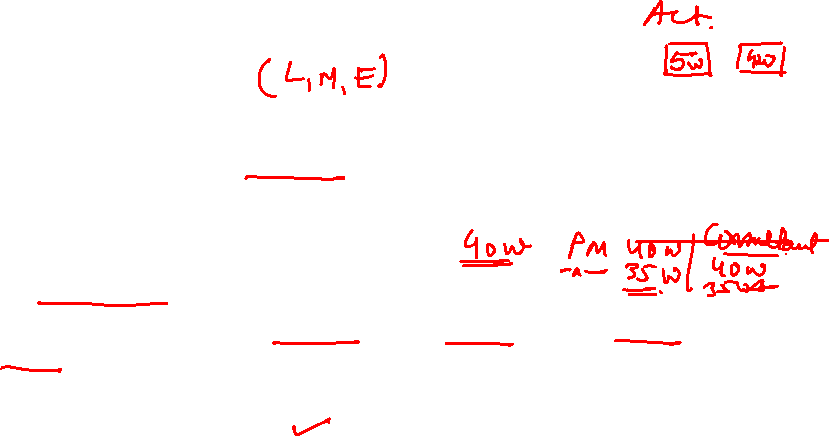 Act.
5W 4W
(L, M, E)
40W PM 40W / Consultant
35W 40W
35W